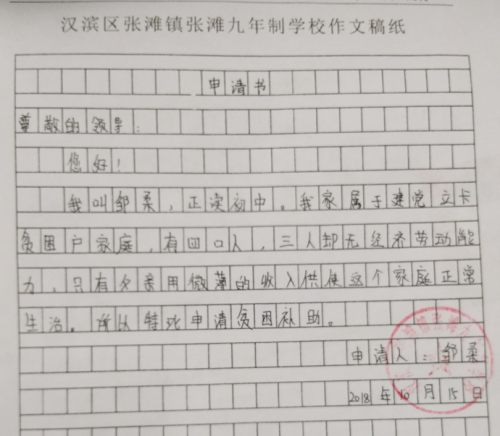 汉滨区张滩镇张滩九年制学校作文稿纸
申请书
尊敬的领导:
您好!
我叫邹柔,正读初中。我家属于建党立卡
贫困户家庭,有四口人,三人却无经济劳动能
力,只有父亲用微薄的收入供使这个家庭正常
生活。所以特此申请贫困补助。
申请人:邹柔
2018年10月15日